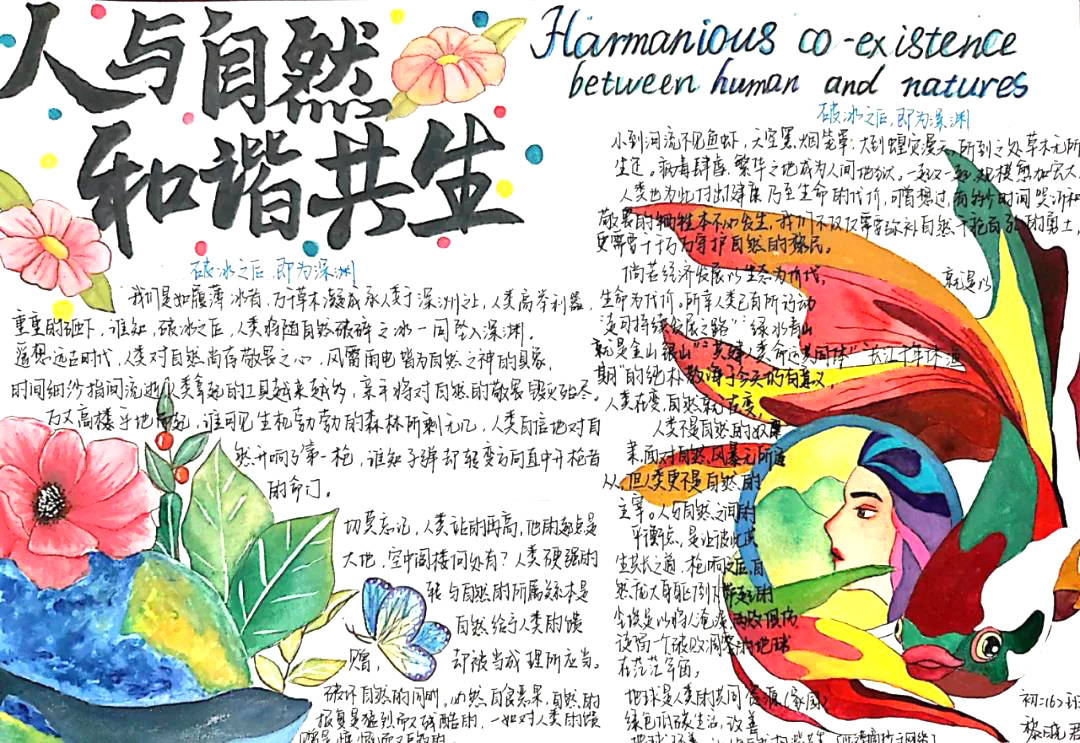 人与自然
和谐共生
Harmanious co-existence
between human and natures
破冰之后,即为深渊
我们是如履薄冰者,万千草木凝成承人类于深渊之上,人类高举利器,
重重的砸下,谁知,破冰之后,人类将随自然破碎之冰一同坠入深渊。
遥想远古时代,人类对自然尚存敬畏之心,风雷雨电皆为自然之神的具象,
时间细沙指间流逝,人类拿起的工具越来越多,亲手将对自然的敬畏毁灭殆尽。
万丈高楼平地而起,谁可见生机勃勃的森林所剩无几,人类自信地对自
然开响了第一枪,谁知子弹却转变方向直中开枪者
的命门。
切莫忘记,人类站的再高,他的起点是
大地,空中阁楼何处有?人类硬强的
转与自然的所属
自然给予人类的馈
赠,却被当成理所应当。
破坏自然的同时,必然自食恶果,自然的
报复是猛烈而又残酷的,一如对人类的馈
赠是慷慨而又
破冰之后,即为深渊
小到河流不见鱼虾,天空黑烟笼罩;大到蝗灾漫天,所到之处草木无所
生还。病毒肆虐,繁华之地成为人间地狱。一起又一起,规模愈加宏大。
人类也为此付出健康乃至生命的代价,可曾想过,有些时间哭诉和
敬畏的牺牲本不必发生,我们不仅仅需要弥补自然千疮百孔的勇士,
更需要千千万万守护自然的移民。
倘若经济发展以生态为代价, 就是以
生命为代价。所幸人类已有所行动
走可持续发展之路",绿水青山
就是金山银山""共建人类命运共同体""长江十年休渔
期"的绝
人类在变,自然就在变,
人类不是自然的奴隶
来面对自然风暴无所适
从,但人类更不是自然的
主宰。人与自然之间的
平衡点,是让彼此
生长之道,枪响之后,自
然
该留一个破败凋零的地球
在茫茫宇宙,
地球是人类的共同资源(家园)
绿色低碳生活,改善
初二(6)班